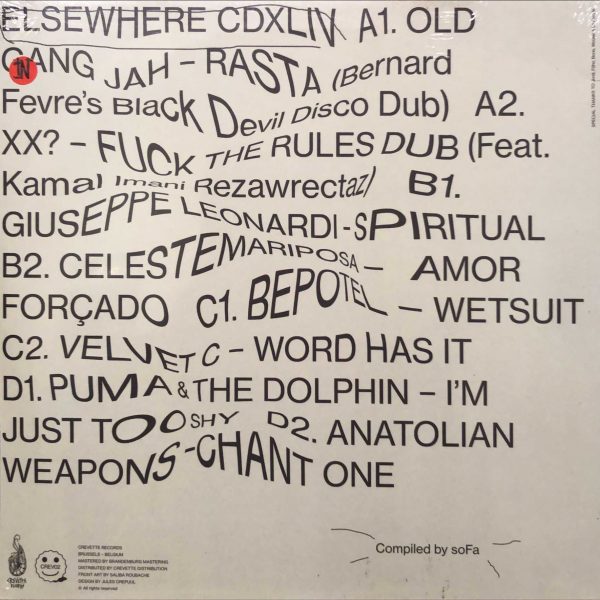 ELSEWHERE CDXLIV A1. OLD
GANG JAH – RASTA (Bernard
Fevre's Black Devil Disco Dub) A2.
XX? – FUCK THE RULES DUB (Feat.
Kamal Imani Rezawrectaz) B1.
GIUSEPPE LEONARDI - SPIRITUAL
B2. CELESTEMARIPOSA – AMOR
FORÇADO C1. BEPOTEL – WETSUIT
C2. VELVET C – WORD HAS IT
D1. PUMA & THE DOLPHIN – I'M
JUST TOO SHY D2. ANATOLIAN
WEAPONS - CHANT ONE
IN
SPECIAL THANKS TO
Compiled by soFa
CREV02
CREVETTE RECORDS
BRUSSELS – BELGIUM
MASTERED BY BRANDENBURG MASTERING
DISTRIBUTED BY CREVETTE DISTRIBUTION
FRONT ART BY SALIBA ROUBACHE
DESIGN BY JULES CREPUUL
© All rights reserved